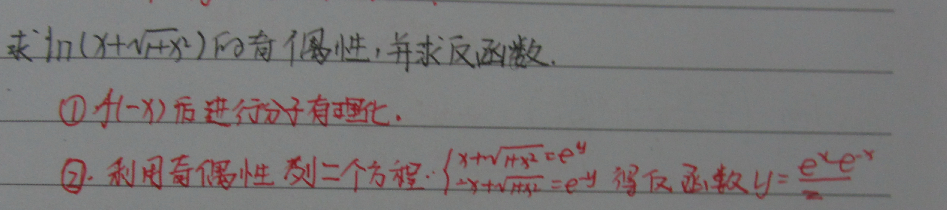 求 ln(x+√(1+x²)) 的奇偶性,并求反函数.
①f(-x)后进行分子有理化.
②.利用奇偶性列二个方程.{x+√(1+x²)=e^y -x+√(1+x²)=e^-y 得反函数y=(e^x-e^-x)/2